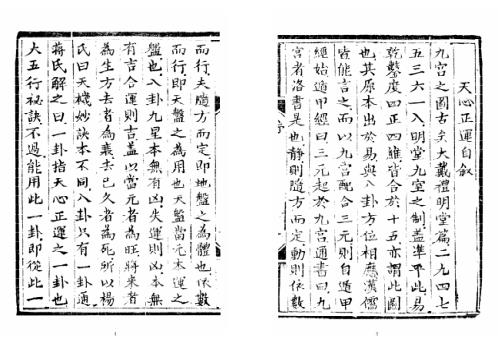 天心正運自敘
九宮之圖古矣大戴禮明堂篇二九四七
五三六一八明堂九室之制蓋準乎此易
乾鑿度四正四維皆合於十五亦謂此圖
也其原本出於易與八卦方位相應漢儒
皆能言之而以九宮配合三元則自遁甲
經始遁甲經曰三元起於九宮通書曰九
宮者洛書是也靜則隨方而定動則依數
而行夫隨方而定即地盤之為體也依數
而行即天盤之為用也天盤當元本運之
盤也八卦九星本無凶失運則凶本無
有吉合運則吉蓋以當元者為旺將來者
為生方去者為衰去已久者為死所以楊
氏曰天機妙訣本不同八卦只有一卦通
蔣氏解之曰一卦指天心正運之一卦也
大五行秘訣不過能用此一卦即從此一
1
1